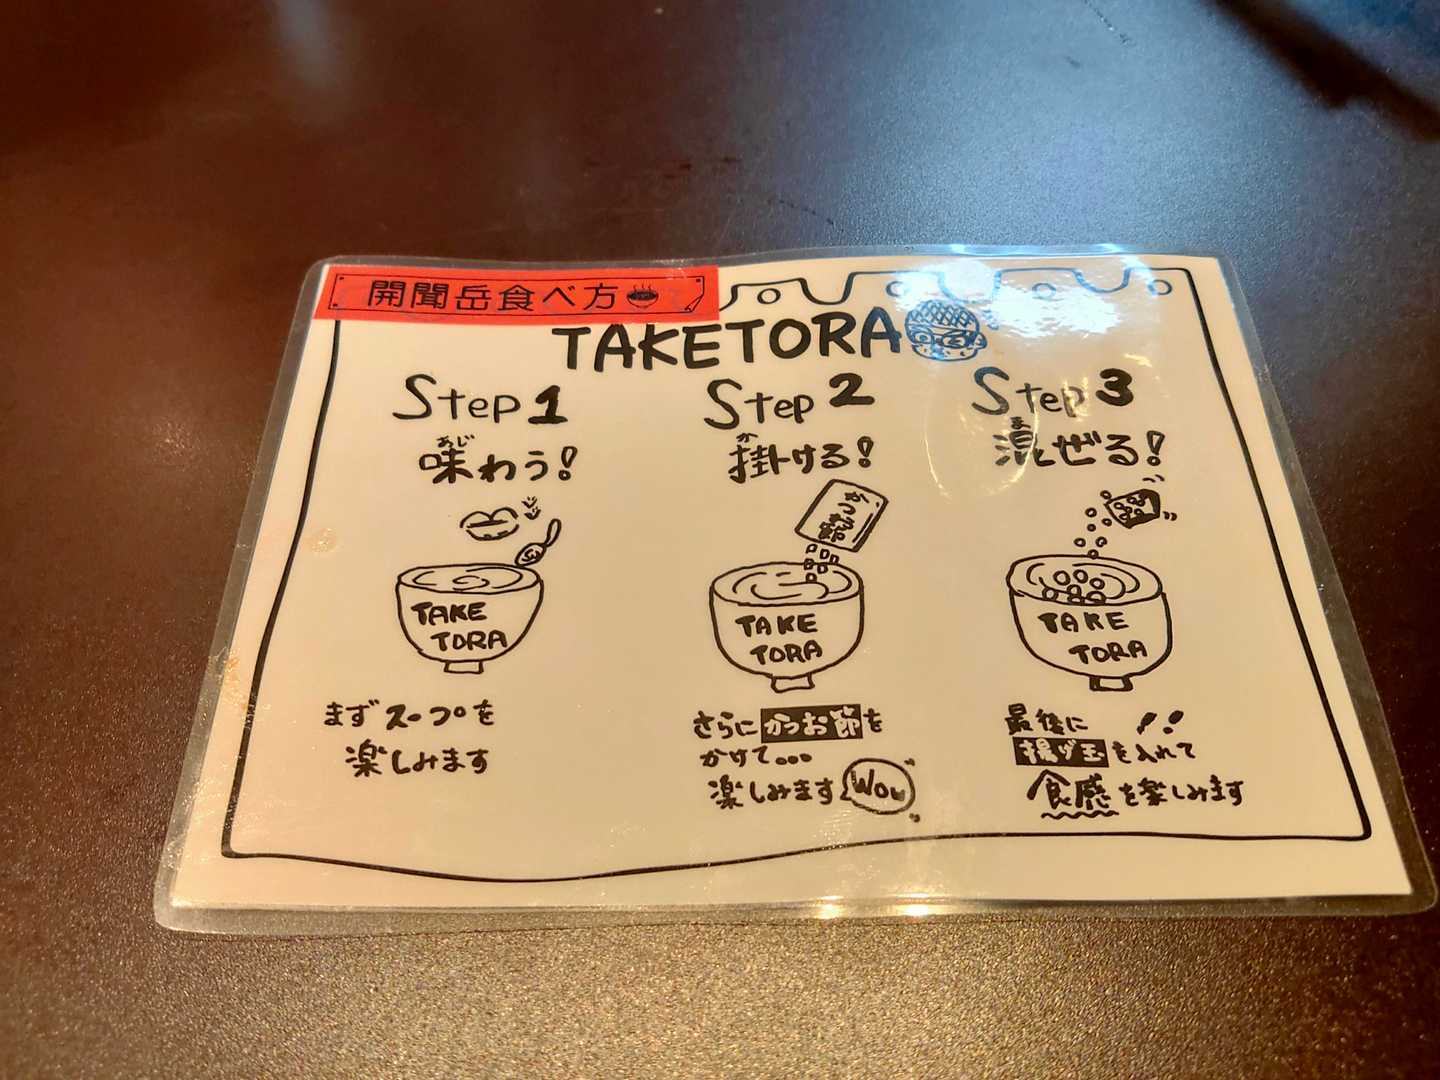 開聞岳食べ方
TAKETORA
Step 1
あじ
味わう!
TAKE
TORA
まずスープを
楽しみます
Step 2
か
掛ける!
かつお節
TAKE
TORA
さらにかつお節を
かけて...
楽しみます
Wow
Step 3
ま
混ぜる!
TAKE
TORA
最後に!!
揚げ玉を入れて
食感を楽しみます